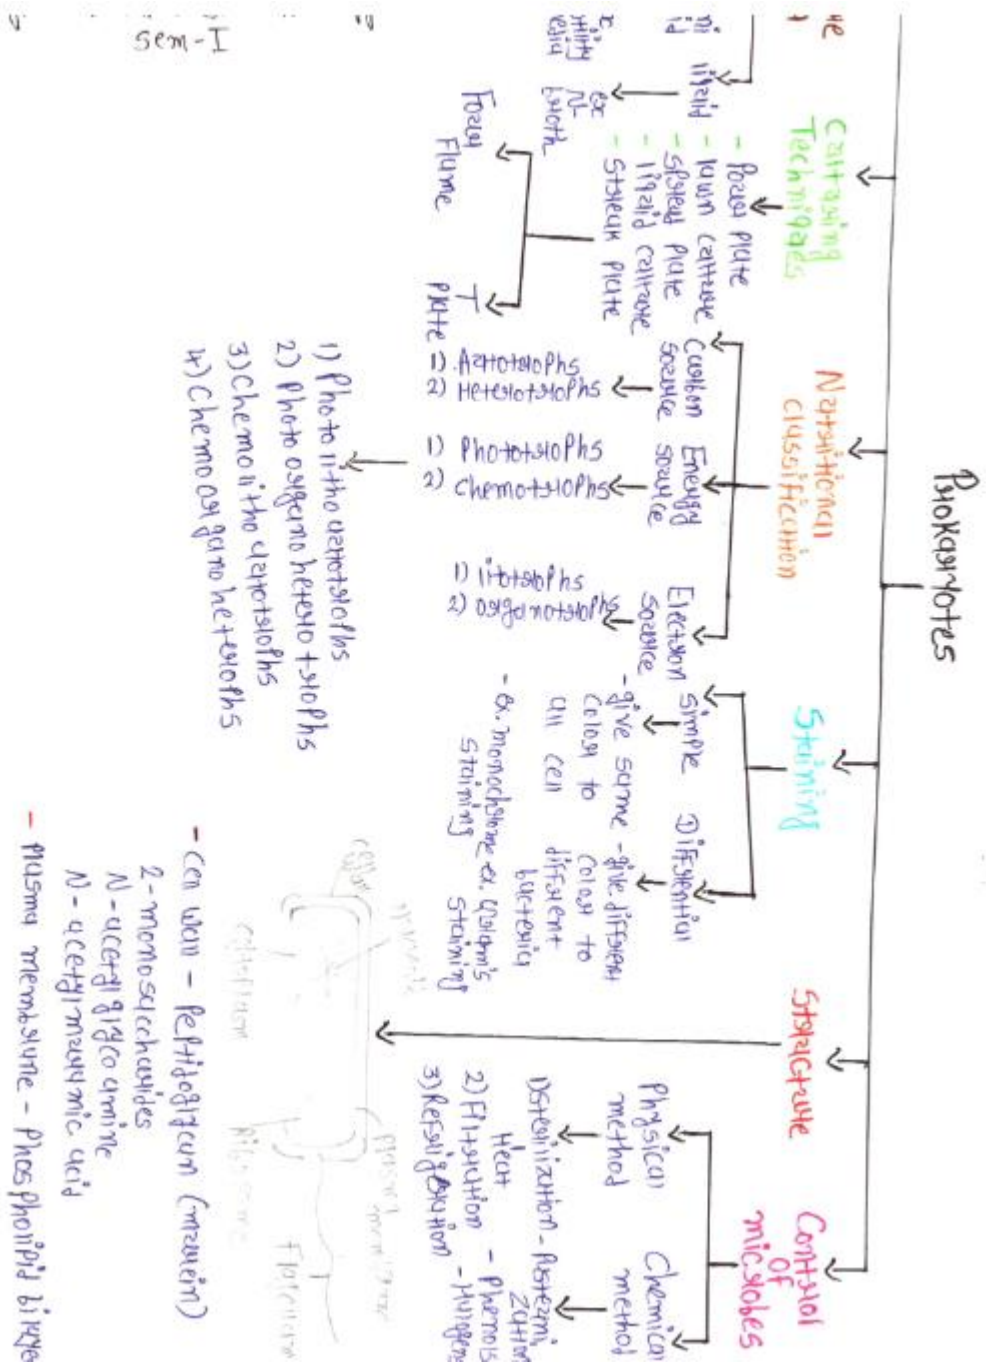 Prokaryotes
Culturing
Techniques
liquid
ex
N-
broth
- Pour plate
- lawn culture
- spread plate
- liquid culture
- streak plate
Four
Flame
T
plate
Nutritional
classification
Carbon
source
1) Autotrophs
2) Heterotrophs
Energy
source
1) Phototrophs
2) chemotrophs
Electron
source
1) litotrophs
2) organotrophs
1) Photolithoautotrophs
2) Photoorganoheterotrophs
3) Chemolithoautotrophs
4) Chemoorganoheterophs
Staining
Simple
- give same
color to
all cell
- ex. monochrome
staining
Diffrential
- give different
color to
different
bacteria
ex. Gram's
staining
Structure
cell
wall
plasma membrane
cytoplasm
Ribosome
Flagellum
- cell wall - Peptidoglycan (murein)
2 - monosaccharides
N - acetylglycoamine
N - acetylmuramic acid
- Plasma membrane - Phospholipid bilayer
Control
of
microbes
Physical
method
1) Sterilization -
Heat
2) Filtration
3) Refrigeration
Chemical
method
- Phenols
I - sem